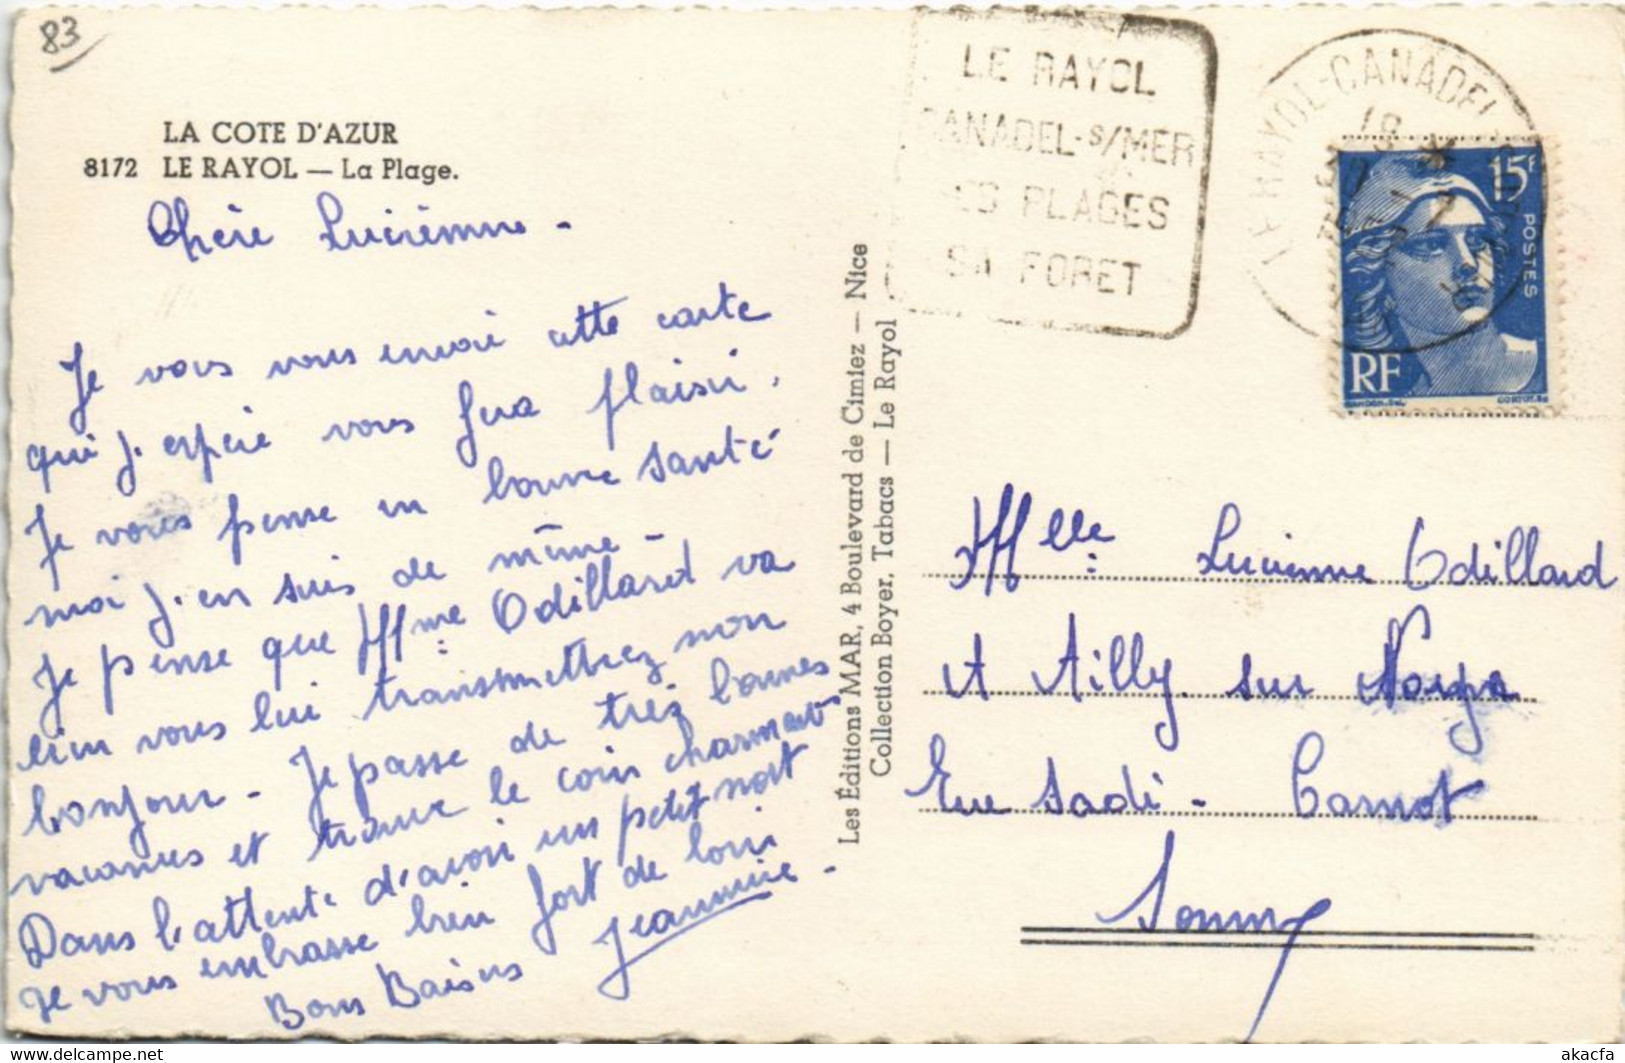 83
LA COTE D'AZUR
8172 LE RAYOL — La Plage.
Chère Lucienne -
Je vais vous envoie cette carte
qui j'espère vous fera plaisir.
Je vous pense en bonne santé
moi j'en suis de même -
Je pense que Mme Odillard va
bien vous lui transmettrez mon
bonjour - Je passe de très bonnes
vacances et trouve le coin charmant
Dans l'attente d'avoir un petit mot
je vous embrasse bien fort de loin
Bons Baisers Jeannine -
Les Éditions MAR, 4 Boulevard de Cimiez — Nice
Collection Boyer, Tabacs — Le Rayol
LE RAYOL
CANADEL-S/MER
SES PLAGES
SA FORET
LE RAYOL-CANADEL
15F
POSTES
RF
GANDON.DEL
CORTOT.SC
Mlle Lucienne Odillard
A Ailly sur Noye
Rue Sadi - Carnot
Somme
www.delcampe.net
akacfa